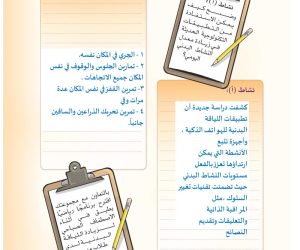 نشاط (١):
وضح كيف
يمكن الاستفادة
من التطبيقات
التكنولوجية الحديثة
في زيادة معدل
النشاط البدني
اليومي؟
١ - الجري في المكان نفسه.
٢ - تمارين الجلوس والوقوف في نفس
المكان جميع الاتجاهات.
٣- تمرين القفز في نفس المكان عدة
مرات وفي
٤ - تمرين تحريك الذراعين والساقين
جانباً.
نشاط (أ)
كشفت دراسة جديدة أن
تطبيقات اللياقة
البدنية للهواتف الذكية،
وأجهزة تتبع
الأنشطة التي يمكن
ارتداؤها تعزز بالفعل
مستويات النشاط البدني
حيث تضمنت تقنيات تغيير
السلوك، مثل
المراقبة الذاتية
والتعليقات وتقديم
النصائح
بالتعاون مع مجموعتك
اقترح برنامجًا رياضيًا
يطبق في أثناء
الاصطفاف الصباحي
لزيادة اللياقة
البدنية لدى